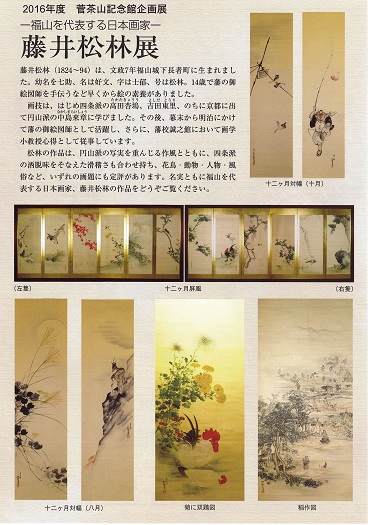 2016年度　菅茶山記念館企画展
―福山を代表する日本画家―
藤井松林展
藤井松林（1824～94）は、文政7年福山城下長者町に生まれまし
た。幼名を七助、名は好文、字は士郁、号は松林。14歳で藩の御
絵図師を手伝うなど早くから絵の素養がありました。
画技は、はじめ四条派の高田杏塢、吉田東里、のちに京都に出
て円山派の中島来章に学びました。その後、幕末から明治にかけ
て藩の御絵図師として活躍し、さらに、藩校誠之館において画学
小教授心得として従事しています。
松林の作品は、円山派の写実を重んじる作風とともに、四条派
の洒脱味をそなえた滑稽さも合わせ持ち、花鳥・動物・人物・風
俗など、いずれの画題にも定評があります。名実ともに福山を代
表する日本画家、藤井松林の作品をどうぞご覧ください。
十二ヶ月対幅（十月）
（左隻）
十二ヶ月屏風
（右隻）
十二ヶ月対幅（八月）
菊に双鶏図
稲作図